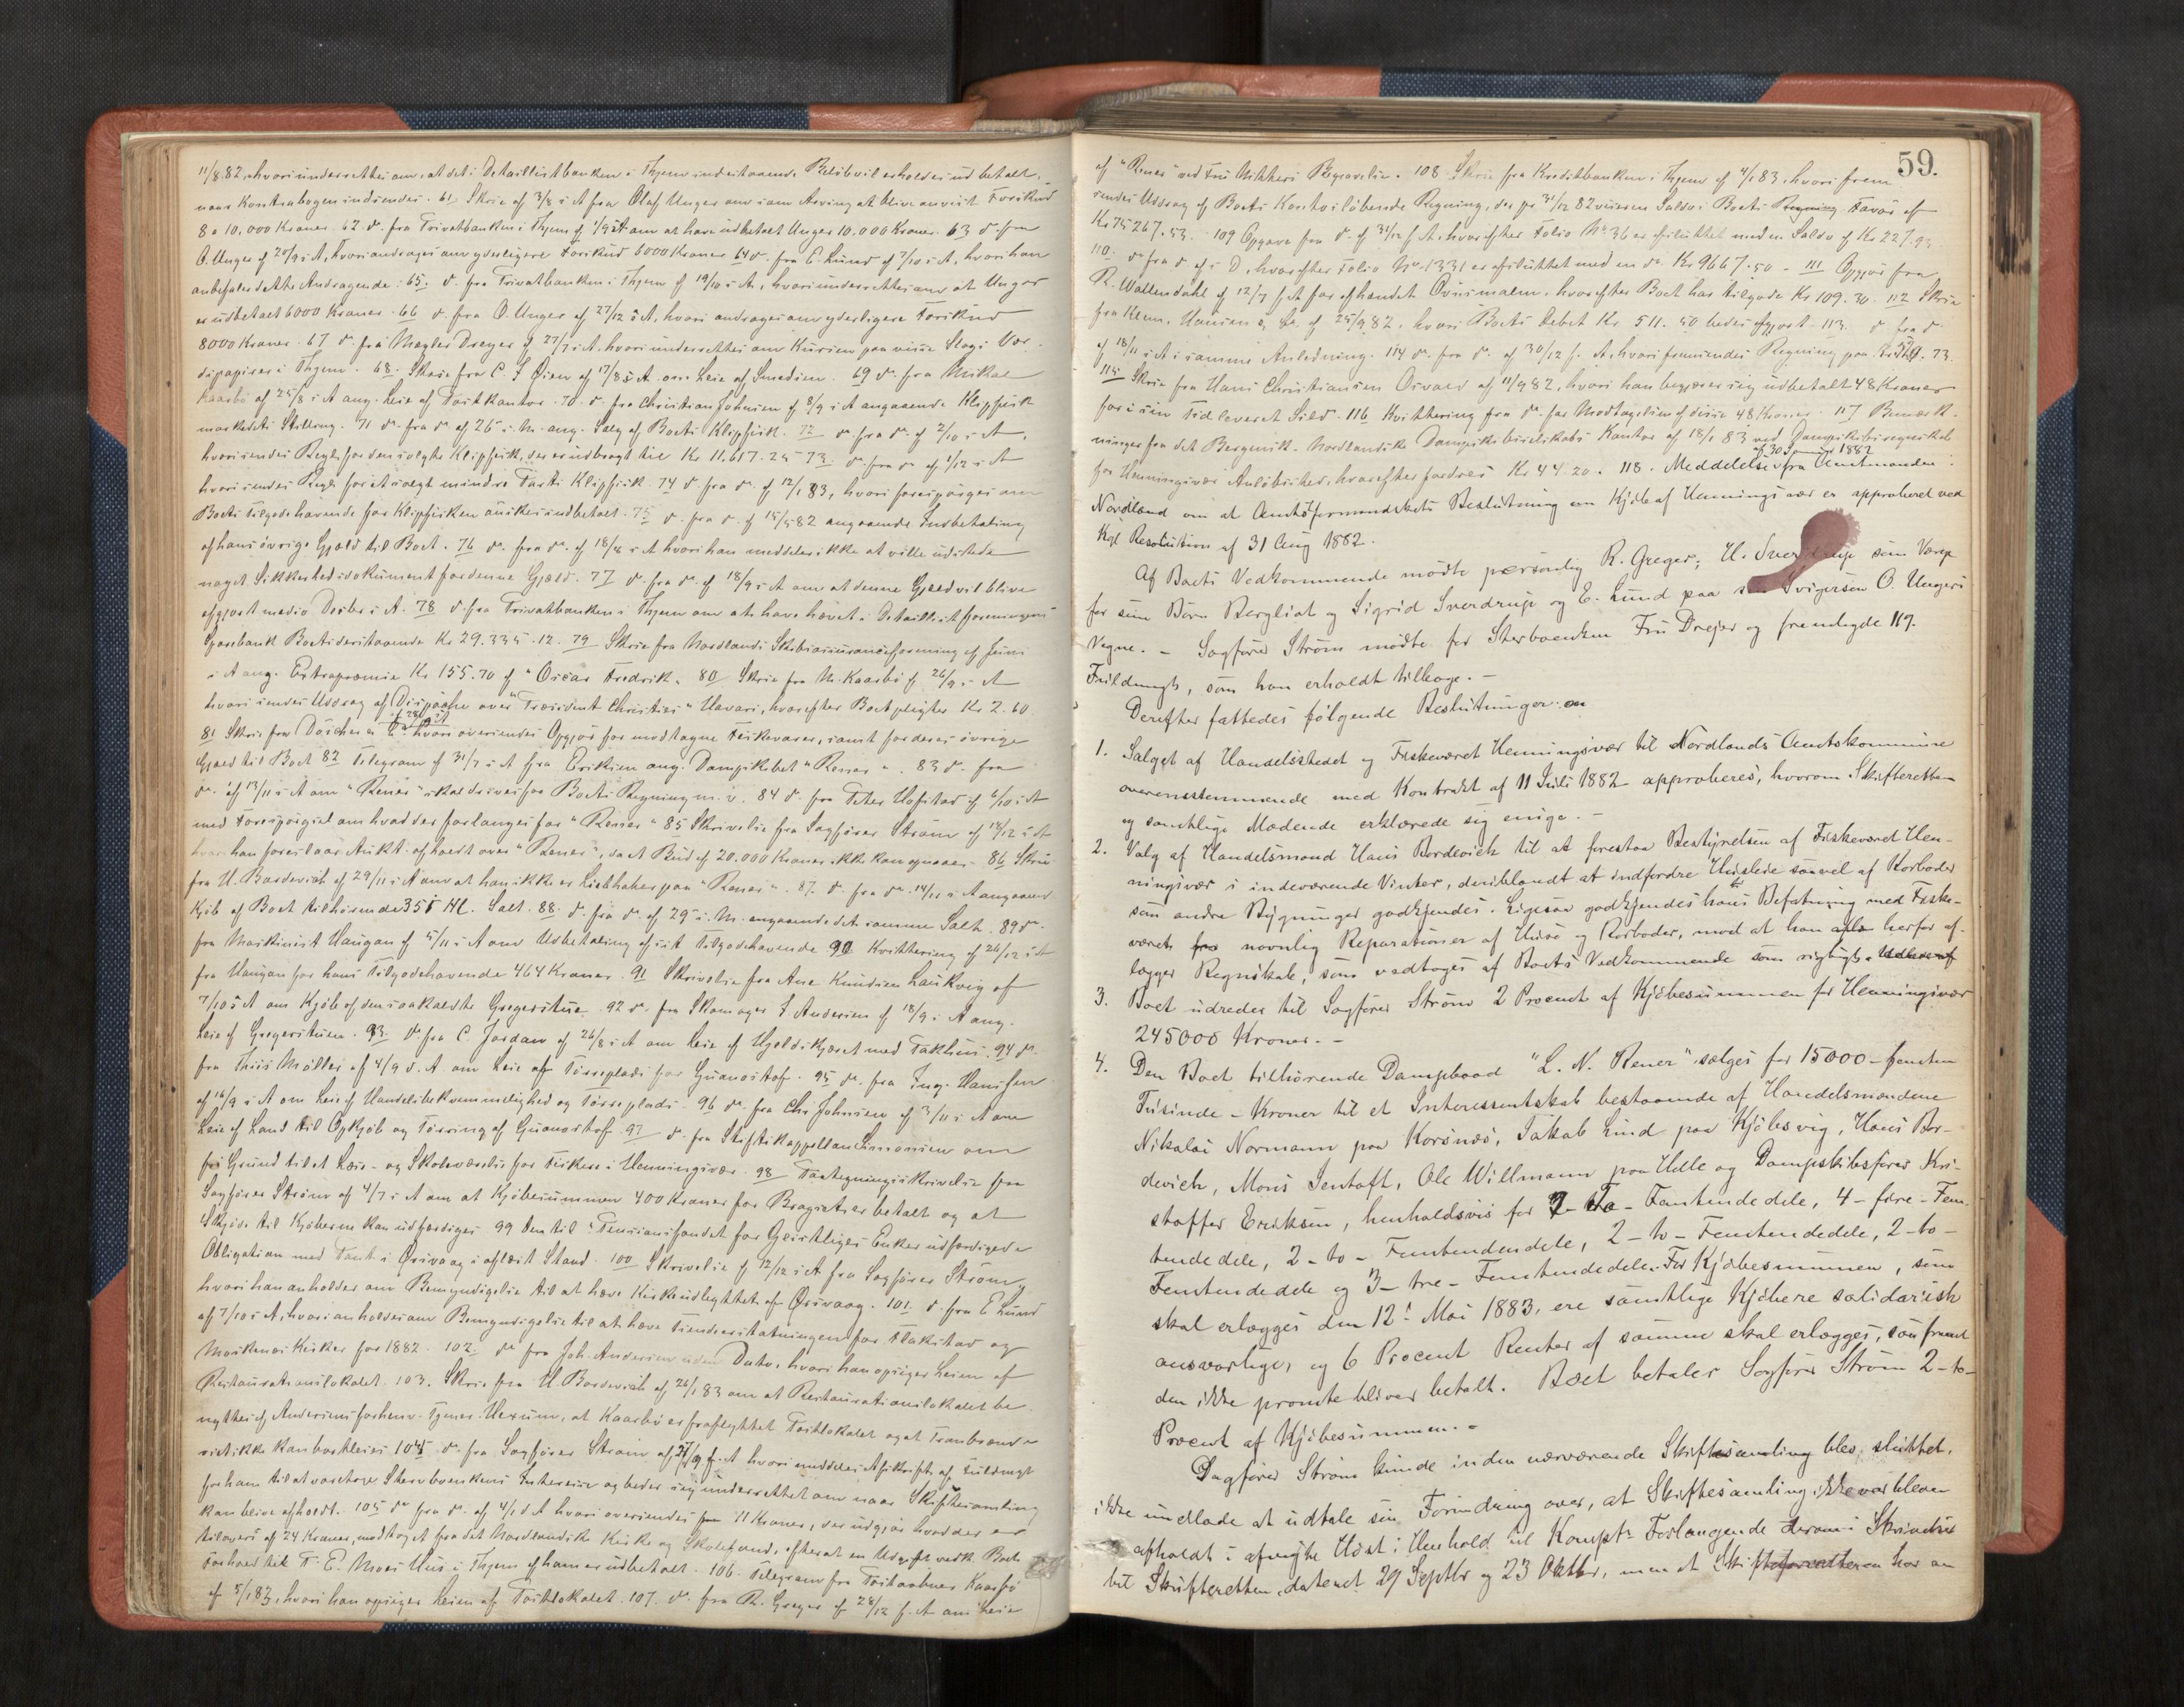 11/8.82, hvori underrettes om, at det i Detaillistbanken i Thjem indestaaende Beløb vil erholdes udbetalt,
naar Kontrabogen indsendes. 61 Skriv. af 3/8 s. A fra Olaf Unger om som Arving at blive anvist Forskud
8 a 10,000 Kroner. 62 do. fra Privatbanken i Thjem af 1/9 s A om at have udbetalt Unger 10.000 Kroner. 63 do fra
O. Unger af 20/9 s. A, hvori andrages om yderligere Forskud 6000 Kroner 64 do. fra E. Lund af 7/10 s. A, hvori han
anbefaler dette Andragende: 65. do. fra Privatbanken i Thjem af 19/10 s. A, hvori underrettes om at Unger
er udbetalt 6000 Kroner. 66 do. fra O. Unger af 27/12 s. A, hvori andrages om yderligere Forskud
8000 Kroner. 67 do. fra Mægler Dreyer af 27/7 s. A. hvori underrettes om Kursen paa visse Slags Vær-
dipapirer i Thjem. 68. Skriv fra C. S Øien af 17/8 s. A. om Leie af Smedien. 69 do. fra Mikal
Kaarbø af 25/8 s. A ang. Leie af Postkontor. 70. do. fra Christian Johnsen af 8/9 s. A angaaende Klipfisk
markedets Stilling. 71 do. fra do af 26 s. M. ang. Salg af Boets Klipfisk. 72 do. fra do. af 2/10 s. A,
hvori sendes Regk. for den solgte Klipfisk, der er udbragt til Kr 11.617.25 73. do. fra do af 1/12 s. A
hvori sendes Regk for et solgt mindre Parti Klipfisk. 74 do fra do. af 12/1 83, hvori forespørges om
Boets Tilgodehavende for Klipfisken ønskes indbetalt. 75 do. fra do. af 15/5 82 angaaende Indbetaling
af hans øvrige Gjæld til Boet. 76 do. fra do. af 18/8 s. A hvori han meddeler ikke at ville udstede
noget Sikkerhedsdokument for denne Gjæld. 77 do. fra do. af 18/9 s. A om at denne Gjæld vil blive
opgjort medio Decbr s. A. 78 do fra Privatbanken i Thjem om at have hævet i Detaillistforeningens
Sparebank Boets deristaaende Kr 29.335.12. 79 Skriv fra Nordlands Skibsassuranceforening af Juni
s. A ang. Extrapræmie Kr 155.70 af "Oscar Fredrik". 80 Skriv fra M. Kaarbø af 26/9 s. A
hvori sendes Uddrag af Dispache over "Præsident Christies" Havari, hvorefter Boet pligter Kr 2.60.
81 Skriv fra Döscher & C. hvori oversendes Opgjør for modtagne Fiskevarer, samt for deres øvrige
Gjæld til Boet 82 Telegram af 31/7 s. A fra Eriksen ang. Dampskibet "Rener". 83 do. fra
do. af 13/11 s. A om "Rener" skal drives for Boets Regning m. v. 84 do. fra Peter Hofstad af 6/10 s. A
med Forespørgsel om hvad der forlanges for "Rener" 85 Skrivelse fra Sagfører Strøm af 18/12 s. A
hvori han foreslaar Aukt. afholdt over "Rener", da et Bud af 20.000 Kroner ikke kan opnaaes. 86 Skriv
fra H. Bordevich af 29/11 s. A om at han ikke er Liebhaber paa "Rener". 87. do. fra do. 14/11 s. A angaaend.
Kjøb af Boet tilhørende 351 Hl. Salt. 88. do. fra do. af 29 s. M. angaaende det samme Salt. 89 do.
fra Maskinist Haugan af 5/11 s. A om Udbetaling af sit Tilgodehavende 90 Kvittering af 26/12 s. A
fra Haugan for hans Tilgodehavende 464 Kroner. 91 Skrivelse fra Ane Knudsen Laukvig af
7/10 s. A om Kjøb af den saakaldte Gregerstue. 92 do. fra Skomager S Andersen af 18/9 s. A ang.
Leie af Gregerstuen. 93. do. fra C. Jordan af 26/8 s. A om Leie af Hjeldskjæret med Pakhus. 94 do.
fra Thiis Møller af 4/9 s. A om Leie af Tørreplads for Guanostof. 95 do. fra Ing. Hanssen
af 16/9 s. A om Leie af Handelsbekvemmelighed og Tørreplads. 96 do. fra Chr Johnsen af 3/11 s. A om
Leie af Land til Opkjøb og Tørring af Guanostof. 97 do. fra Stiftskappellan Simonsen om
fri Grund til et Læse- og Skoleværelse for Fiskere i Henningsvær. 98 Paategningsskrivelse fra
Sagfører Strøm af 4/7 s. A om at Kjøbesummen 400 Kroner for Bragrats er betalt og at
Skjøde til Kjøberne kan udfærdiges 99 Den til "Pensionsfondet for Geistliges Enker udfærdigede
Obligation med Pant i Ørsvaag i aflæst Stand. 100 Skrivelse af 12/12 s. A fra Sagfører Strøm,
hvori han anholder om Bemyndigelse til at hæve Kirkeudbyttet af Ørsvaag. 101. do. fra E Lund
af 7/10 s. A, hvori anholdes om Bemyndigelse til at hæve Tiendeerstatningen for Flakstad og
Moskenæs Kirker for 1882. 102. do. fra Joh. Andersen uden Dato, hvori han opsiger Leien af
Restaurationslokalet. 103. Skriv. fra H. Bordevich af 26/1 83 om at Restaurationslokalet be-
nyttes af Andersens forhenv. Tjener Hexum, at Kaarbø er fraflyttet Postlokalet og at Tranbrænde-
riet ikke kan bortleies 104 do. fra Sagfører Strøm af 27/9 f. A hvori meddeles Afskrift af Fuldmagt
for ham til at varetage Stervboenkens Interesse og beder sig underrettet om naar Skiftesamling
kan blive afholdt. 105 do fra do. af 4/1 d. A hvori oversendes 11 Kroner, der udgjør hvad der er
tilovers af 24 Kroner, modtaget fra det Nordlandske Kirke og Skolefond, efterat en Udgift vedk. Boets
Forhold til T. E. Moes Hus i Thjem af ham er udbetalt. 106. Telegram fra Postaabner Kaarbø
af 5/1 83, hvori han opsiger Leien af Postlokalet. 107. do. fra R. Greger af 28/12 f. A om Leie
59.
af "Rener" ved Fru Mikkers Begravelse. 108 Skriv fra Kreditbanken i Thjem af 4/1 83, hvori frem-
sendes Uddrag af Boets Kontoisløbende Regning, der pr 31/12 82 viser en Saldo i Boets Regning Favør af
Kr 75267.53. 109 Opgave fra do. af 31/12 f A, hvorefter Folio No 36 er afsluttet med en Saldo af Kr 227.93
110. do fra do af s. D, hvorefter Folio No. 1331 er afsluttet med en do. Kr 9667.50 - 111 Opgjør fra
R. Wallendahl af 12/7 f A for afhændet Ovnsmalm, hvorefter Boet har tilgode Kr 109.30. 112 Skriv
fra Klem. Hansen & Co. af 25/9 82, hvori Boets Debet Kr 511.50 bedes opgjort. 113. do fra do.
af 18/11 s. A i samme Anledning. 114 do. fra do. af 30/12 f. A, hvori fremsendes Regning paa Kr 529.73.
115. Skriv fra Hans Christiansen Osvold af 11/9 82, hvori han begjærer sig udbetalt 48 Kroner
for i sin Tid leveret Sild. 116 Kvittering fra do. for Modtagelsen af disse 48 Kroner. 117 Bemærk-
ninger fra det Bergensk-Nordlandske Dampskibsselskabs Kontor af 18/1 83 ved Dampskibsregnskab
af 30 Januar 1882
for Henningsvær Anløbssted, hvorefter fordres Kr 44.20. 118. Meddelelse fra Amtmanden i
Nordland om at Amtsformandskabets Beslutning om Kjøb af Henningsvær er approberet ved
Kgl Resolution af 31 Aug 1882.
Af Boets Vedkommende mødte personlig R. Greger, H. Sverdrup som Værge
for sine Børn Bergliot og Sigrid Sverdrup og E. Lund paa sin Svigersøn O. Ungers
Vegne. - Sagfører Strøm mødte for Stervboenken Fru Dreyer og fremlagde 119.
Fuldmagt, som han erholdt tilbage. -
Derefter fattedes følgende Beslutninger om
1. Salget af Handelsstedet og Fiskeværet Henningsvær til Nordlands Amtskommune
overensstemmende med Kontrakt af 11 Juli 1882 approberes, hvorom Skifteretten
og samtlige Mødende erklærede sig enige. -
2. Valg af Handelsmand Hans Bordevich til at forestaa Bestyrelsen af Fiskeværet Hen-
ningsvær i indeværende Vinter, deriblandt at indfordre Husleie saavel af Rorboder
som andre Bygninger godkjendes. Ligesaa godkjendes hans Befatning med Fiske-
været fra navnlig Reparationer af Huse og Rorboder, mod at han afla herfor af-
lægger Regnskab, som vedtages af Boets Vedkommende som rigtigt.
3. Boet udreder til Sagfører Strøm 2 Procent af Kjøbesummen for Henningsvær
245000 Kroner. -
4. Den Boet tilhørende Dampbaad "L. N. Rener" sælges for 15000 - femten
Tusinde - Kroner til et Interessentskab bestaaende af Handelsmændene
Nikolai Normann paa Korsnæs, Jakob Lind paa Kjölsvig, Hans Bor-
devich, Mons Jentoft, Ole Willmann paa Helle og Dampskibsfører Kri-
stoffer Eriksen, henholdsvis for 2 - to - Femtendedele, 4 - fire - Fem-
tendedele, 2 - to - Femtendedele, 2 - to - Femtendedele, 2 - to -
Femtendedele og 3 - tre - Femtendedele. For Kjøbesummen, som
skal erlægges den 12te Mai 1883, ere samtlige Kjøbere solidarisk
ansvarlige, og 6 Procent Renter af samme skal erlægges, saafremt
den ikke promte bliver betalt. Boet betaler Sagfører Strøm 2 - to -
Procent af Kjøbesummen. -
Sagfører Strøm kunde inden nærværende Skiftesamling blev sluttet,
ikke undlade at udtale sin Forundring over, at Skiftesamling ikke var bleven
afholdt i afvigte Høst i Henhold til Kompts Forlangende derom i Skrivelser
til Skifteretten, dateret 29 Septbr og 23 Oktbr, men at Skifteforvalteren har an